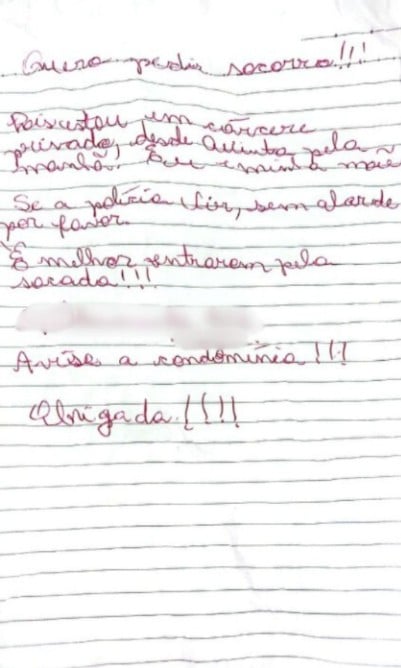 Quero pedir socorro!!!
Pois estou em cárcere
privado, desde Quinta pela
manhã. Eu e minha mãe
Se a polícia vir, sem alarde
por favor.
É melhor entrarem pela
sacada!!!
Avise a condomínia!!!
Obrigada!!!!